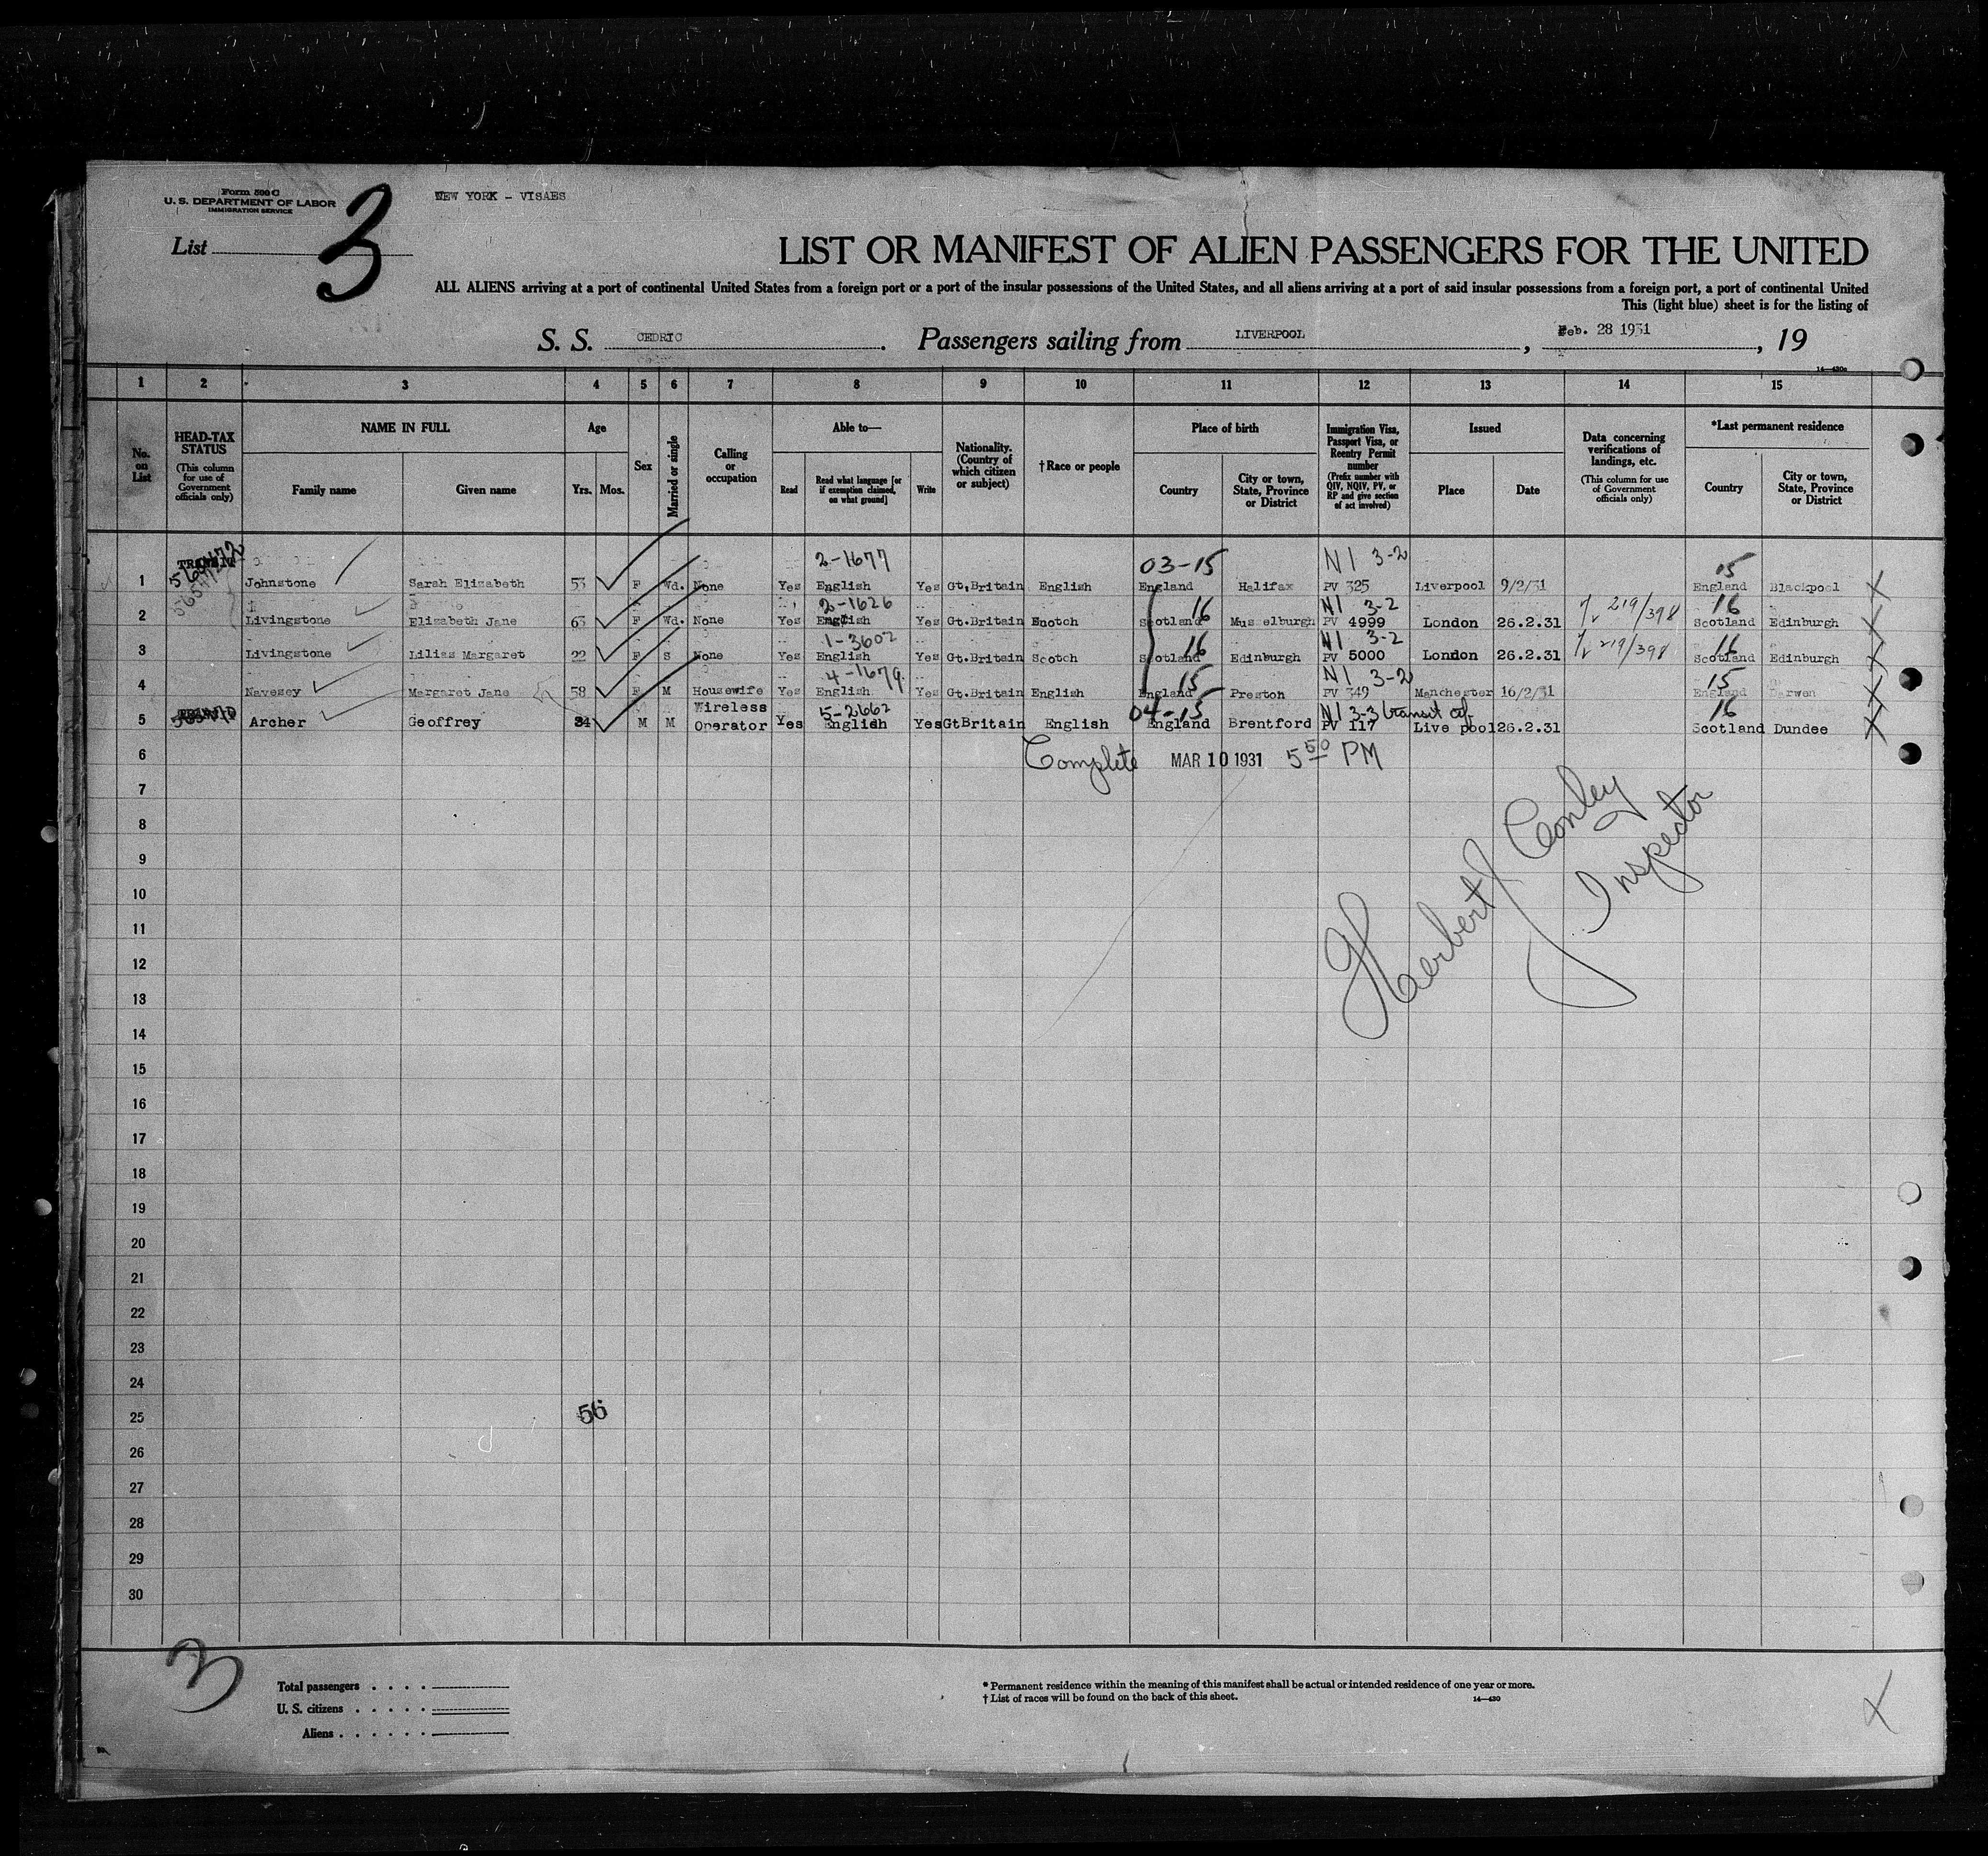 Form 500 C
U. S. DEPARTMENT OF LABOR
IMMIGRATION SERVICE
NEW YORK - VISAES
List 3
LIST OR MANIFEST OF ALIEN PASSENGERS FOR THE UNITED
ALL ALIENS arriving at a port of continental United States from a foreign port or a port of the insular possessions of the United States, and all aliens arriving at a port of said insular possessions from a foreign port, a port of continental United
This (light blue) sheet is for the listing of
S. S. CEDRIC. Passengers sailing from LIVERPOOL, Feb. 28 1931, 19
14—430a
1 2 3 4 5 6 7 8 9 10 11 12 13 14 15
No. on List
HEAD-TAX STATUS (This column for use of Government officials only)
NAME IN FULL
Family name Given name
Age
Yrs. Mos.
Sex
Married or single
Calling or occupation
Able to—
Read Read what language [or if exemption claimed, on what ground] Write
Nationality. (Country of which citizen or subject)
†Race or people
Place of birth
Country City or town, State, Province or District
Immigration Visa, Passport Visa, or Reentry Permit number (Prefix number with QIV, NQIV, PV, or RP and give section of act involved)
Issued
Place Date
Data concerning verifications of landings, etc. (This column for use of Government officials only)
*Last permanent residence
Country City or town, State, Province or District
TRANSIT 2-1677 03-15 N1 3-2 15
1 Johnstone Sarah Elizabeth 53 F Wd. None Yes English Yes Gt.Britain English England Halifax PV 325 Liverpool 9/2/31 England Blackpool X
2-1626 16 N1 3-2 219/398 16
2 Livingstone Elizabeth Jane 63 F Wd. None Yes English Yes Gt.Britain Enotch Scotland Musselburgh PV 4999 London 26.2.31 Scotland Edinburgh X
1-3602 16 N1 3-2 219/398 16
3 Livingstone Lilias Margaret 22 F S None Yes English Yes Gt.Britain Scotch Scotland Edinburgh PV 5000 London 26.2.31 Scotland Edinburgh X
4-1679 15 N1 3-2 15
4 Navesey Margaret Jane 58 F M Housewife Yes English Yes Gt.Britain English England Preston PV 349 Manchester 16/2/31 England Darwen X
5-2662 04-15 N1 3-3 transit 16
5 Archer Geoffrey 34 M M Wireless Operator Yes English Yes GtBritain English England Brentford PV 117 Live pool 26.2.31 Scotland Dundee X
6 Complete MAR 10 1931 5 50 PM
7
8
9
10
11
12
13
14
15
16
17
18
19
20
21
22
23
24
25
26
27
28
29
30
Herbert J Conley
Inspector
56
3
Total passengers
U. S. citizens
Aliens
* Permanent residence within the meaning of this manifest shall be actual or intended residence of one year or more.
† List of races will be found on the back of this sheet.
14—430
X